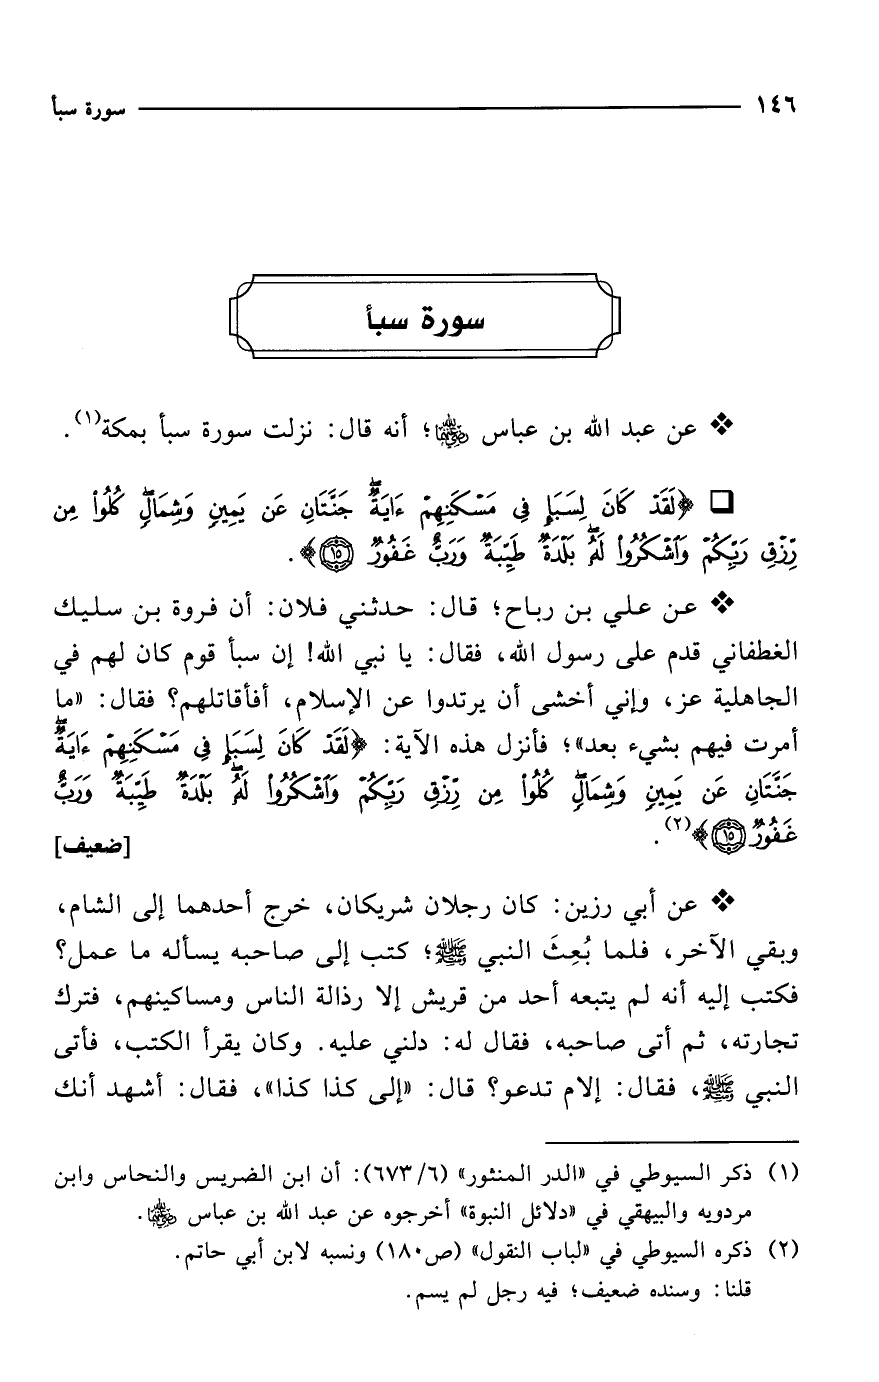 ١٤٦ سورة سبأ
سورة سبأ
❖ عن عبد الله بن عباس ﷺ؛ أنه قال: نزلت سورة سبأ بمكة(١).
❑ ﴿لَقَدْ كَانَ لِسَبَإٍ فِي مَسْكَنِهِمْ ءَايَةٌ ۖ جَنَّتَانِ عَن يَمِينٍ وَشِمَالٍ ۖ كُلُوا۟ مِن
رِّزْقِ رَبِّكُمْ وَٱشْكُرُوا۟ لَهُۥ ۚ بَلْدَةٌ طَيِّبَةٌ وَرَبٌّ غَفُورٌ ١٥﴾.
❖ عن علي بن رباح؛ قال: حدثني فلان: أن فروة بن سليك
الغطفاني قدم على رسول الله، فقال: يا نبي الله! إن سبأ قوم كان لهم في
الجاهلية عز، وإني أخشى أن يرتدوا عن الإسلام، أفأقاتلهم؟ فقال: «ما
أمرت فيهم بشيء بعد»؛ فأنزل هذه الآية: ﴿لَقَدْ كَانَ لِسَبَإٍ فِي مَسْكَنِهِمْ ءَايَةٌ ۖ
جَنَّتَانِ عَن يَمِينٍ وَشِمَالٍ ۖ كُلُوا۟ مِن رِّزْقِ رَبِّكُمْ وَٱشْكُرُوا۟ لَهُۥ ۚ بَلْدَةٌ طَيِّبَةٌ وَرَبٌّ
غَفُورٌ ١٥﴾(٢). [ضعيف]
❖ عن أبي رزين: كان رجلان شريكان، خرج أحدهما إلى الشام،
وبقي الآخر، فلما بُعِثَ النبي ﷺ؛ كتب إلى صاحبه يسأله ما عمل؟
فكتب إليه أنه لم يتبعه أحد من قريش إلا رذالة الناس ومساكينهم، فترك
تجارته، ثم أتى صاحبه، فقال له: دلني عليه. وكان يقرأ الكتب، فأتى
النبي ﷺ، فقال: إلام تدعو؟ قال: «إلى كذا كذا»، فقال: أشهد أنك
(١) ذكر السيوطي في «الدر المنثور» (٦/ ٦٧٣): أن ابن الضريس والنحاس وابن
مردويه والبيهقي في «دلائل النبوة» أخرجوه عن عبد الله بن عباس.
(٢) ذكره السيوطي في «لباب النقول» (ص١٨٠) ونسبه لابن أبي حاتم.
قلنا: وسنده ضعيف؛ فيه رجل لم يسم.